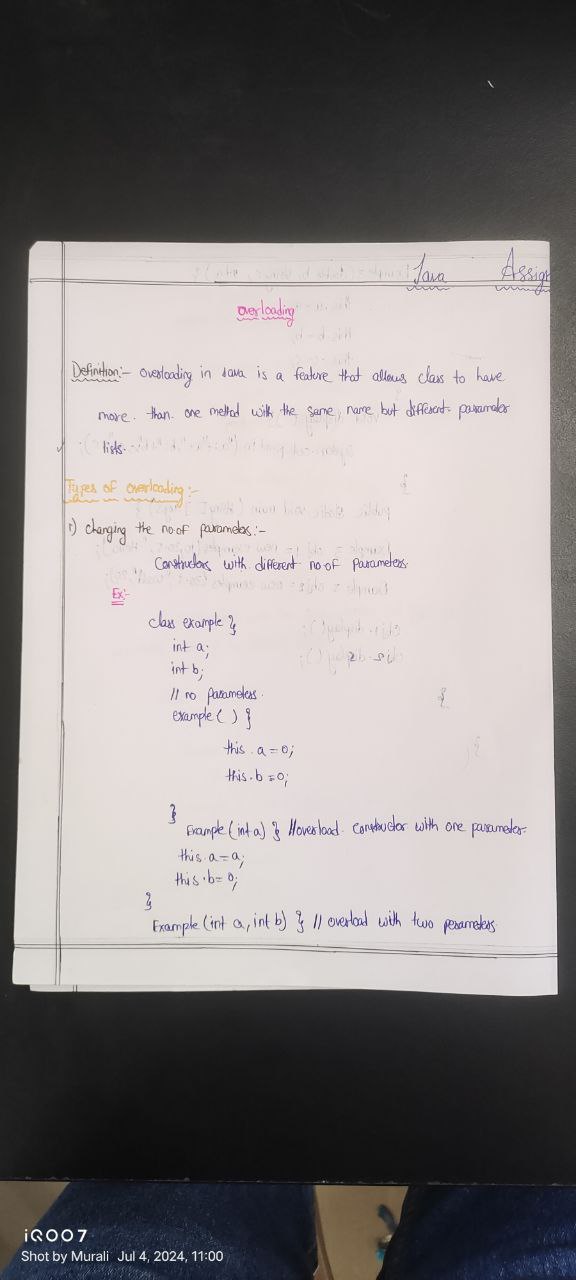 Java Assign
overloading
Definition:- overloading in Java is a feature that allows class to have
more. than. one method with the same name but different parameter
lists.
Types of overloading:-
1) changing the no.of parameters:-
Constructors with different no.of Parameters.
Ex:-
class example {
int a;
int b;
// no parameters.
example ( ) {
this . a = 0;
this . b = 0;
}
Example (int a) { //overload constructor with one parameter
this. a = a;
this . b = 0;
}
Example (int a, int b) { // overload with two parameters
iQOO7
Shot by Murali Jul 4, 2024, 11:00